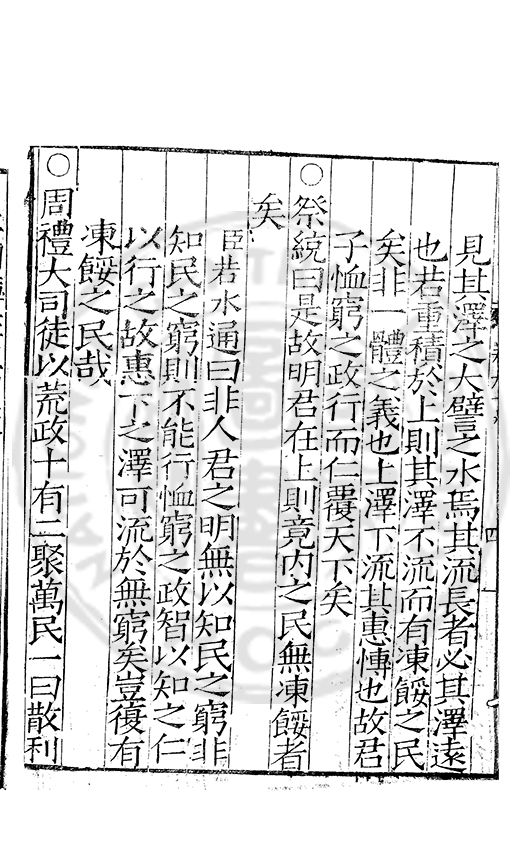 見其澤之大譬之水焉其流長者必其澤遠
也若重積於上則其澤不流而有凍餒之民
矣非一體之義也上澤下流其惠慱也故君
子恤窮之政行而仁覆天下矣
○祭統曰是故明君在上則竟内之民無凍餒者
矣
臣若水通曰非人君之明無以知民之窮非
知民之窮則不能行恤窮之政智以知之仁
以行之故惠下之澤可流於無窮矣豈復有
凍餒之民哉
○周禮大司徒以荒政十有二聚萬民一曰散利